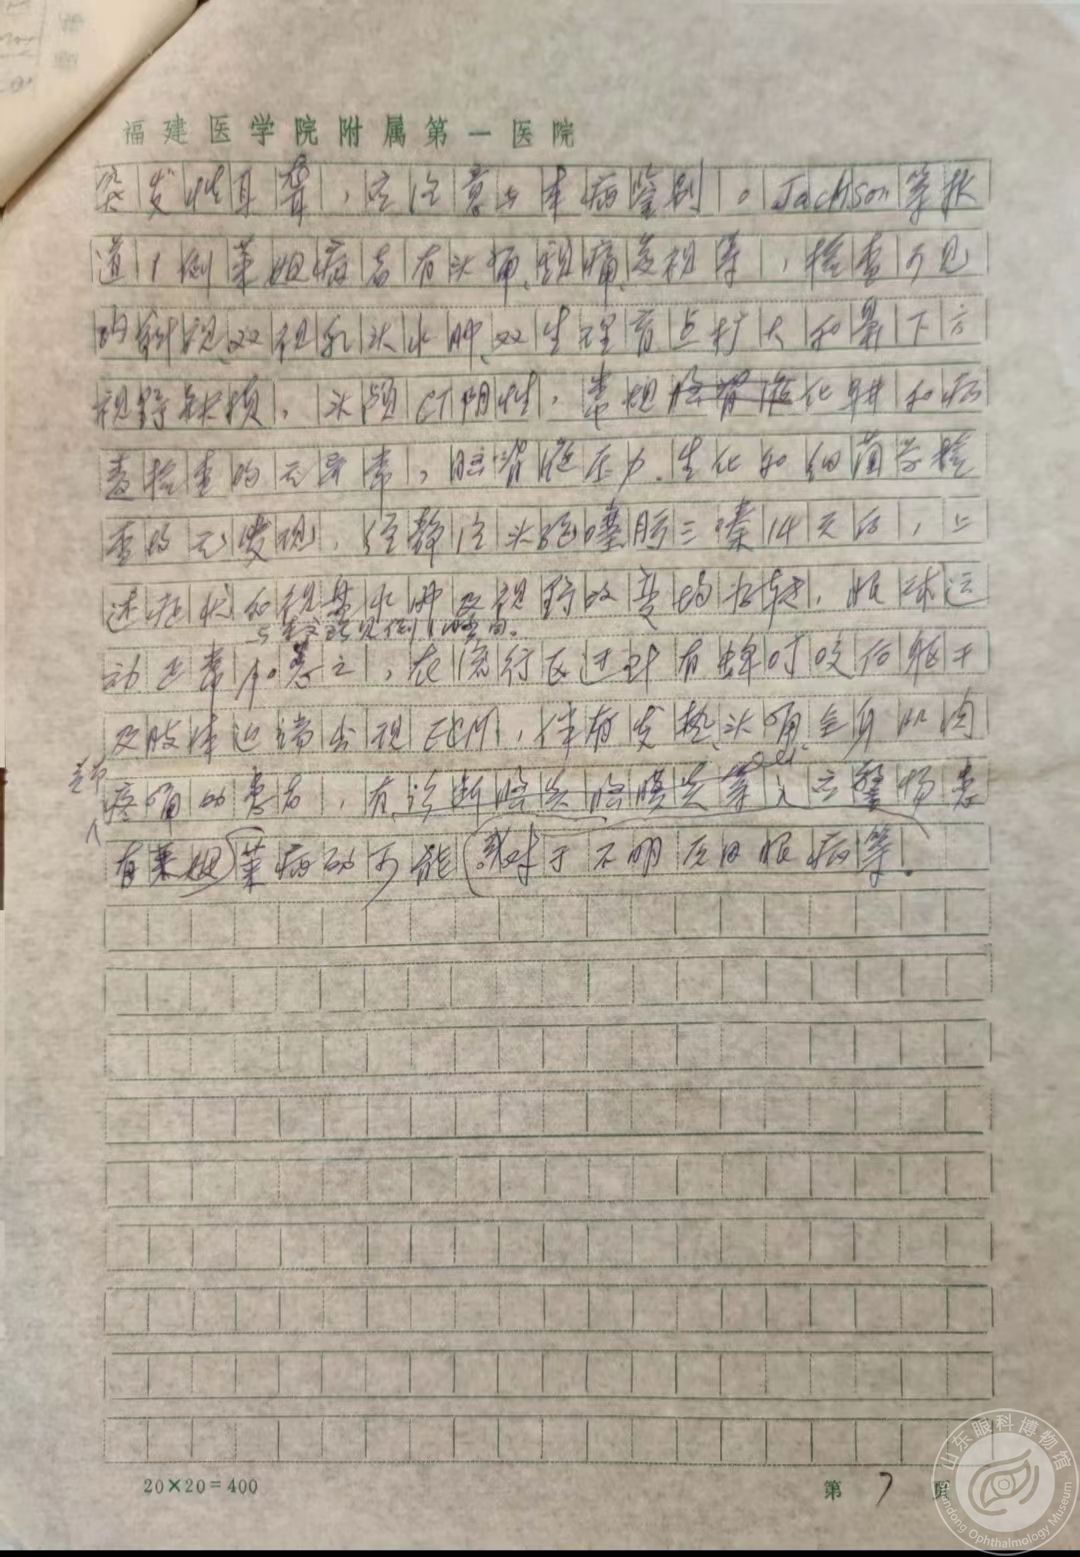 福建医学院附属第一医院
突发性耳聋，应注意与本病鉴别。Jackson等报
道1例莱姆病者有头痛、颈痛、复视等，检查可见
内斜视、双视乳头水肿、双生理盲点扩大和鼻下方
视野缺损，头颅CT阴性，常规脑脊液化 和病
毒检查均无异常，脑脊液压力、生化和细菌学检
查均无发现，经静注头孢噻肟三嗪14天后，上
述症状和视盘水肿及视野改变均好转，眼球运
动正常
总之，在流行区过去有蜱叮咬后躯干
及肢体近端出现ECM，伴有发热、头痛、全身肌肉
关节
疼痛的患者，有诊断脑炎脑膜炎等， 警惕患
有莱姆 病的可能 对于不明原因眼病等。
20×20=400
第 7 页
山东眼科博物馆
Shandong Ophthalmology Museum